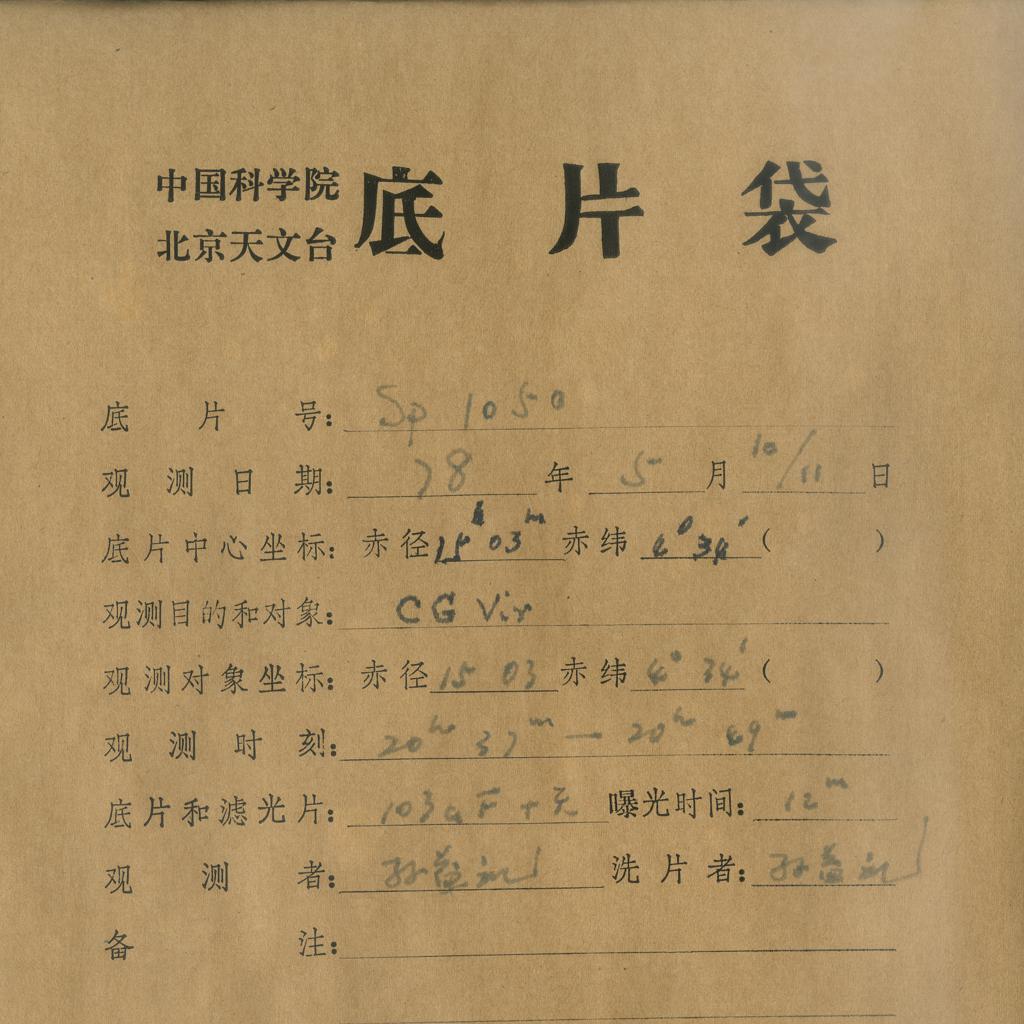 中国科学院
北京天文台
底片袋
底片号: Sp 1050
观测日期: 78 年 5 月 10/11 日
底片中心坐标: 赤径 15h 03m 赤纬 4° 34′ ( )
观测目的和对象: CG Vir
观测对象坐标: 赤径 15 03 赤纬 4° 34′ ( )
观测时刻: 20h 37m — 20h 49m
底片和滤光片: 103aF + 无 曝光时间: 12m
观测者: 孙益礼 洗片者: 孙益礼
备注: